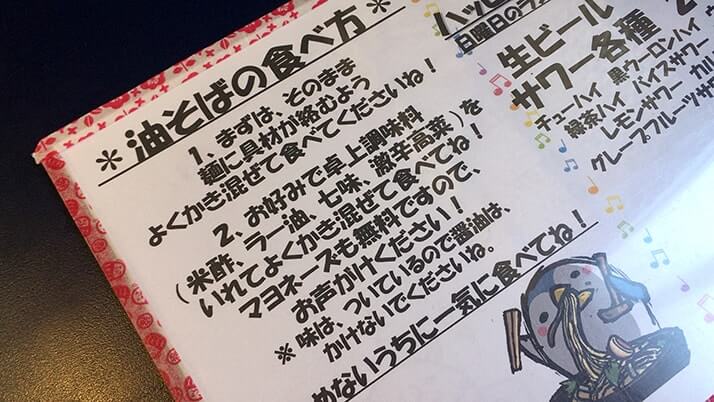 ＊油そばの食べ方＊
1、まずは、そのまま
麺に具材が絡むよう
よくかき混ぜて食べてくださいね！
2、お好みで卓上調味料
（米酢、ラー油、七味、激辛高菜）を
いれてよくかき混ぜて食べてね！
マヨネーズも無料ですので、
お声がけください！
※味は、ついているので醤油は、
かけないでくださいね。
めないうちに一気に食べてね！
ハッピ
日曜日のラ
生ビール
サワー各種
チューハイ 黒ウーロンハイ
緑茶ハイ パイスサワー
レモンサワー カル
グレープフルーツサ